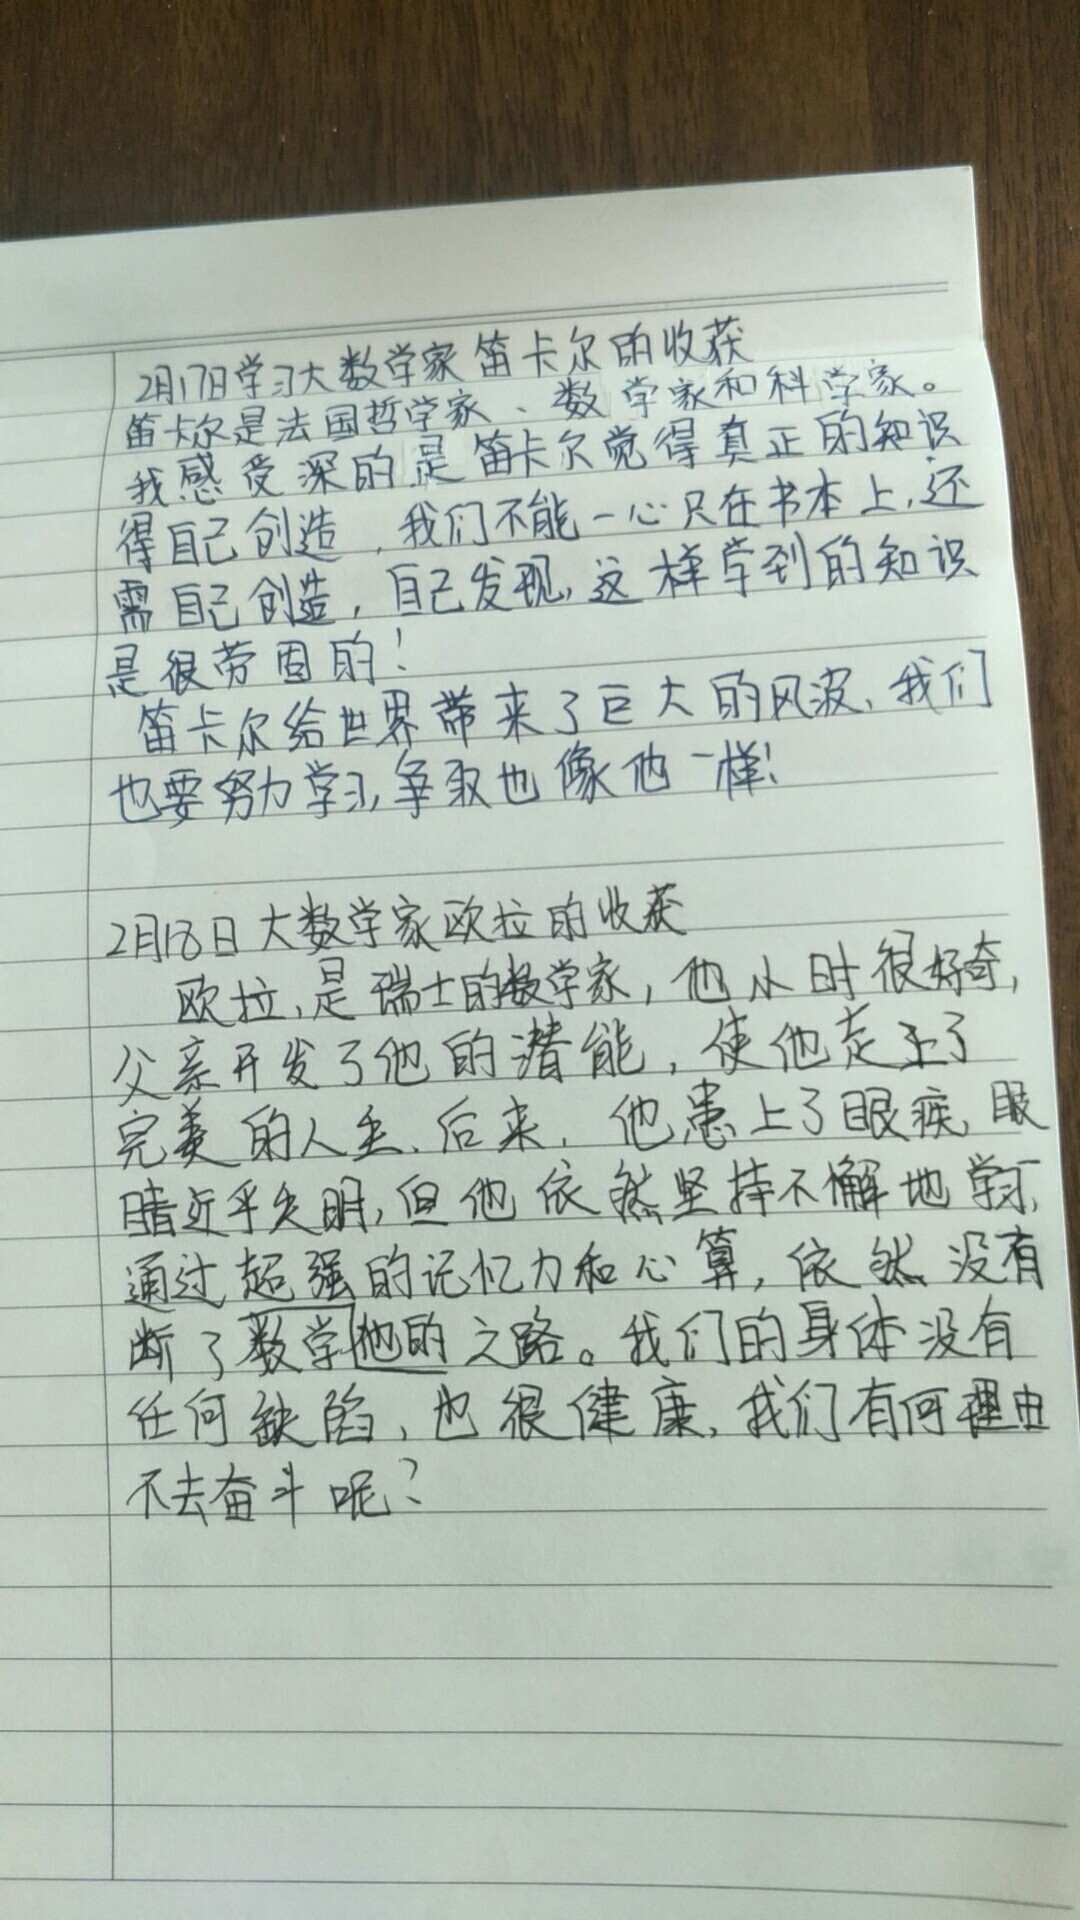 2月17日学习大数学家笛卡尔的收获
笛卡尔是法国哲学家、数学家和科学家。
我感受深的是笛卡尔觉得真正的知识
得自己创造，我们不能一心只在书本上，还
需自己创造，自己发现，这样学到的知识
是很劳固的！
笛卡尔给世界带来了巨大的风波，我们
也要努力学习，争取也像他一样！
2月18日大数学家欧拉的收获
欧拉，是瑞士的数学家，他小时很好奇，
父亲开发了他的潜能，使他走上了
完美的人生，后来，他患上了眼疾，眼
睛近乎失明，但他依然坚持不懈地学习，
通过超强的记忆力和心算，依然没有
断了数学他的之路。我们的身体没有
任何缺陷，也很健康，我们有何理由
不去奋斗呢？